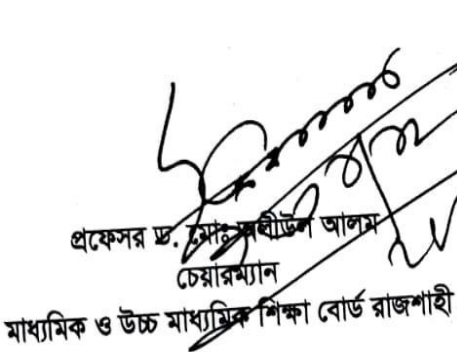 প্রফেসর ড. মোঃ অলীউল আলম
চেয়ারম্যান
মাধ্যমিক ও উচ্চ মাধ্যমিক শিক্ষা বোর্ড রাজশাহী